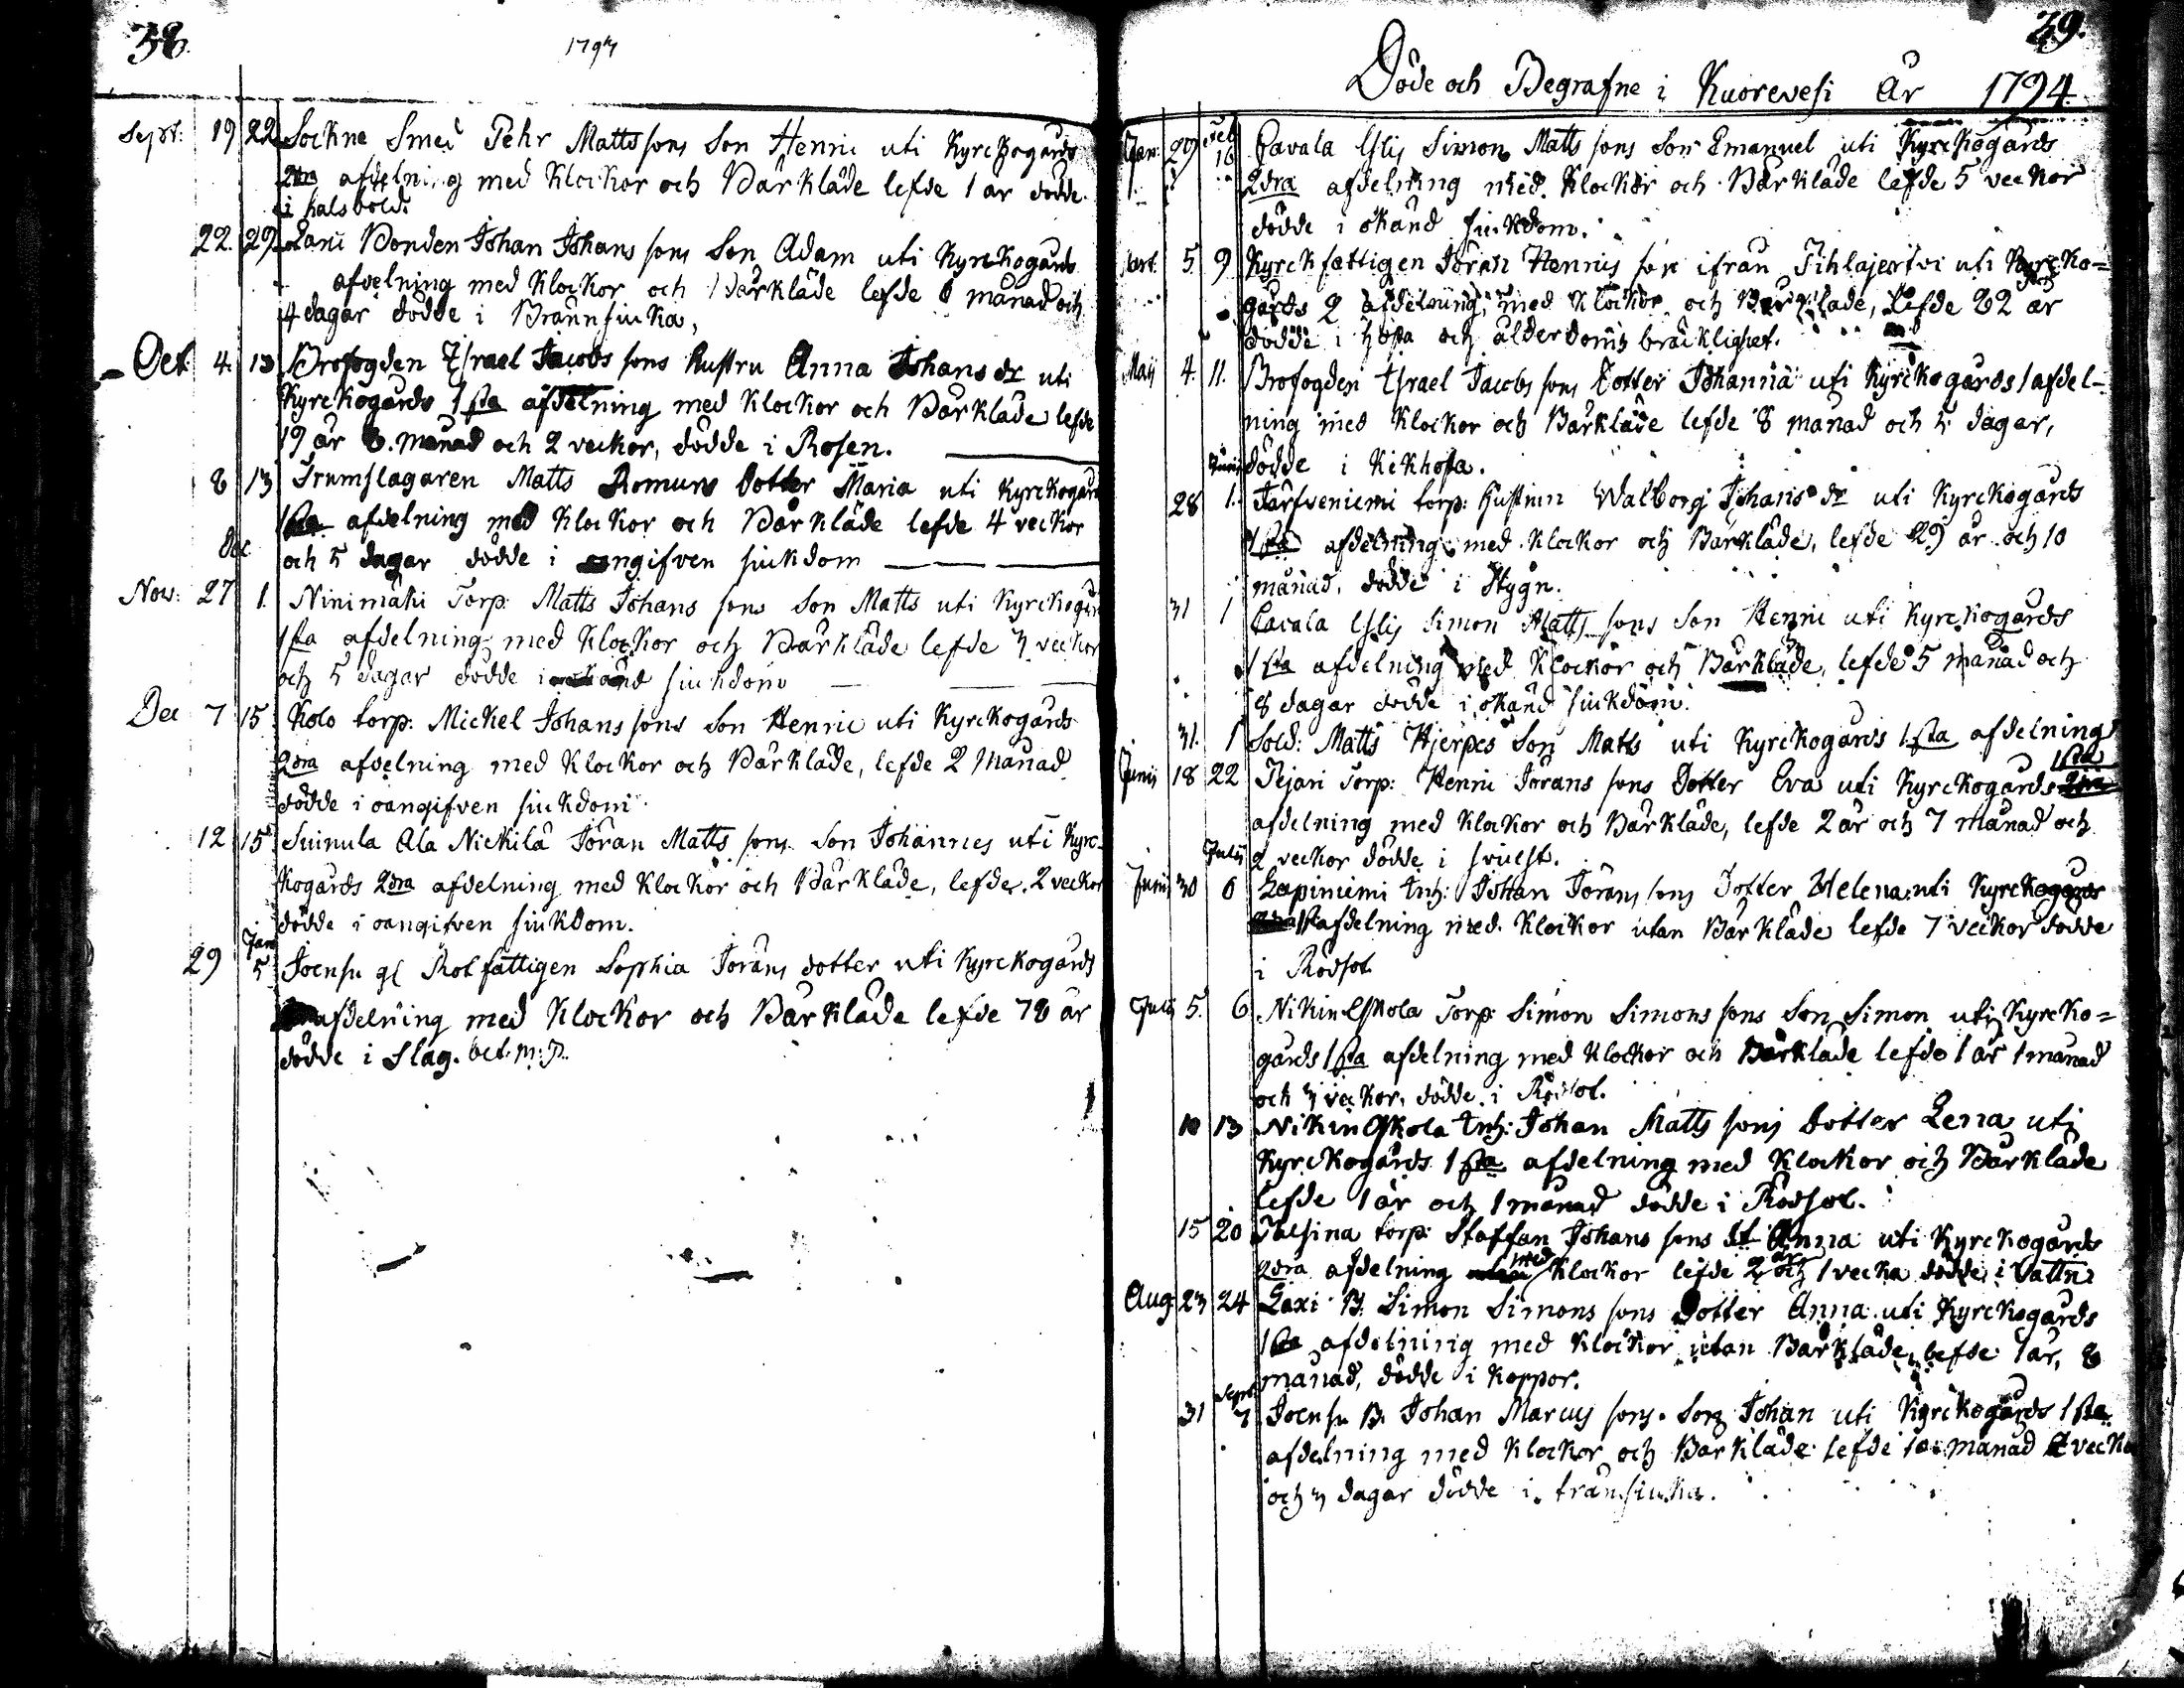 38.
1793
Sept: 19 22 Sockne Smed Pehr Matts sons Son Henric uti Kyrckogårds
2dra afdelning med Klockor och Bårkläde lefde 1 år dödde
i halsböld.
22. 29 Bonden Johan Johans sons Son Adam uti Kyrckogårds
afdelning med Klockor och Bårkläde lefde månad och
4 dagar dödde i Brännsiuka,
Oct 4. 13 Brofogden Israel Jacobs sons hustru Anna Johans dr uti
Kyrckogårds 1sta afdelning med Klockor och Bårkläde lefde
19 år 8. månad och 2 veckor, dödde i Rosen.
8 13 Trumslagaren Matts Romuns Dotter Maria uti Kyrckogårds
1sta afdelning med Klockor och Bårkläde lefde 4 veckor
och 5 dagar dödde i oangifven siukdom
Dec
Nov: 27 1. Ninimäki Torp: Matts Johans sons Son Matts uti Kyrckogårds
1sta afdelning med Klockor och Bårkläde lefde 3 veckor
och 5 dagar dödde i okänd siukdom
Dec 7 15 Kolo torp: Mickel Johans sons Son Henric uti Kyrckogårds
2dra afdelning med Klockor och Bårkläde, lefde 2 Månad
dödde i oangifven siukdom.
12 15 Suinula Ala Nickilä Jöran Matts sons Son Johannes uti Kyrc-
kogårds 2dra afdelning med Klockor och Bårkläde, lefde 2 veckor
dödde i oangifven siukdom.
Jan
29 5 Joensu gl Rotfattigen Sophia Jörans dotter uti Kyrckogårds
afdelning med Klockor och Bårkläde lefde 78 år
dödde i Slag.
39.
Döde och Begrafne i Kuorevesi År 1794.
Feb
Jan: 29 16 Pavala Simon Matts sons Son Emanuel uti Kyrckogårds
2dra afdelning med Klockor och Bårkläde lefde 5 veckor
dödde i okänd siukdom.
5 9 Kyrckfattigen Jöran Hennis son ifrån Jihlajerfvi uti Kyrcko=
gårds 2 afdelning, med Klockor och Bårkläde, lefde 82 år
dödde i hosta och ålderdoms bräcklighet.
Maij 4. 11. Brofogden Israel Jacobs sons Dotter Johanna uti Kyrckogårds 1 afdel-
ning med Klockor och Bårkläde lefde 8 månad och 5 dagar,
Junii dödde i Kikhosta.
28 1. Tarfveniemi torp: hustrun Walborg Johans dr uti Kyrckogårds
1sta afdelning med Klockor och Bårkläde, lefde 29 år och 10
månad, dödde i Stygn.
31 1 Pavala Simon Matts sons Son Henric uti Kyrckogårds
1sta afdelning med Klockor och Bårkläde, lefde 5 månad och
8 dagar dödde i okänd siukdom.
31. 1 Sold: Matts Hjerpes Son Matts uti Kyrckogårds 1.sta afdelning
1sta
Junii 18 22 Jejari Torp: Henric Jörans sons Dotter Eva uti Kyrckogårds 2dra
afdelning med Klockor och Bårkläde, lefde 2 år och 7 månad och
Julii 2 veckor dödde i svulst.
Junii 30 6 Lapiniemi Inh: Johan Jörans sons Dotter Helena uti Kyrckogårds
afdelning med Klockor utan Bårkläde lefde 7 veckor dödde
i Rödsot
Julii 5. 6. Nikin Eskola Torp: Simon Simons sons Son Simon uti Kyrcko=
gårds 1sta afdelning med Klockor och Bårkläde lefde 1 år 1 månad
och 3 veckor, dödde i Rödsot.
10 13 Nikin Eskola Inh: Johan Matts sons Dotter Lena uti
Kyrckogårds 1sta afdelning med Klockor och Bårkläde
lefde 1 år och 1 månad dödde i Rödsot.
15 20 torp: Staffan Johans sons dr Anna uti Kyrckogårds
2dra afdelning med Klockor lefde 2 år och 1 vecka dödde i Vattn
Aug: 23 24 Laxi B. Simon Simons sons Dotter Anna uti Kyrckogårds
1sta afdelning med Klockor utan Bårkläde, lefde 1 år, 8
månad, dödde i Koppor.
Sept.
31 7 Joensu B. Johan Marcus sons Son Johan uti Kyrckogårds 1sta
afdelning med Klockor och Bårkläde lefde månad veckor
och 3 dagar dödde i